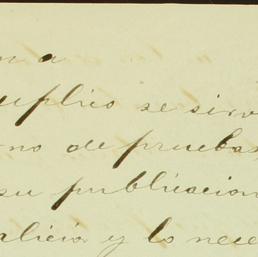 na
suplico se sirv
no de pruebas
su publicacion
alicia y lo nece